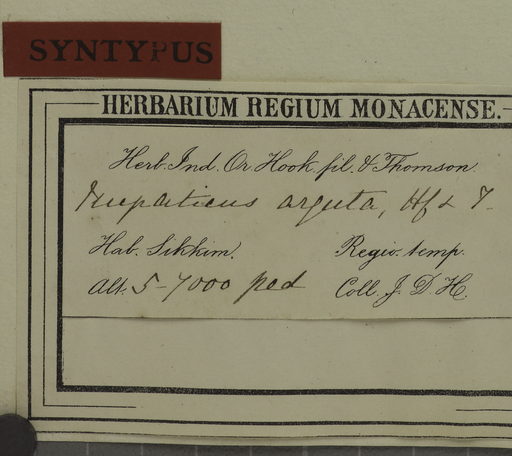 SYNTYPUS
HERBARIUM REGIUM MONACENSE.
Herb. Ind. Or. Hook. fil. & Thomson.
Impatiens arguta, Hf & T.
Hab. Sikkim. Regio. temp.
Alt. 5-7000 ped Coll. J. D. H.